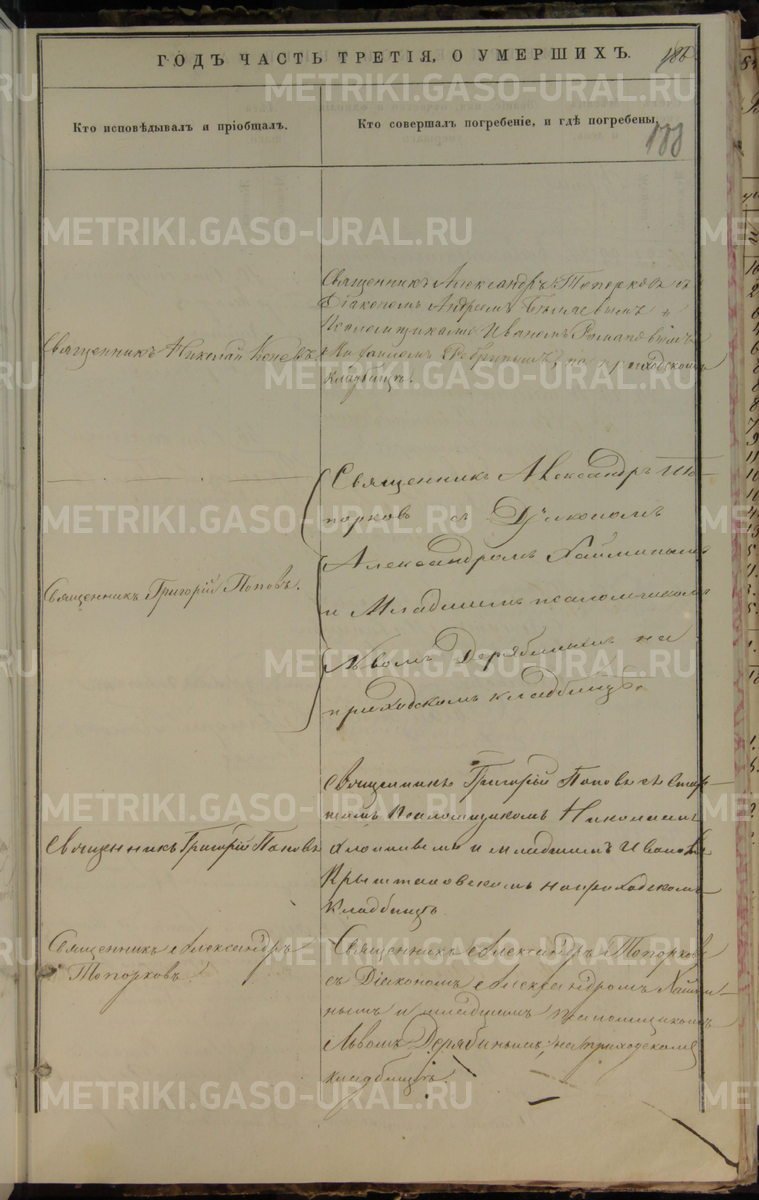 ГОДЪ ЧАСТЬ ТРЕТІЯ, О УМЕРШИХЪ.
186
Кто исповѣдывалъ и пріобщалъ.
Кто совершалъ погребеніе, и гдѣ погребены.
188
Священникъ Николай
Священникъ Александръ Топорковъ съ
Діакономъ Андреемъ и
Псаломщиками Иваномъ Романовымъ
на приходскомъ
кладбищѣ.
Священникъ Григорій Поповъ.
Священникъ Александръ То-
порковъ съ Діакономъ
Александромъ
и Младшимъ псаломщикомъ
Львомъ Дерябинымъ на
приходскомъ кладбищѣ
Священникъ Григорій Поповъ
Священникъ Григорій Поповъ съ Стар-
шимъ Псаломщикомъ Николаемъ
и младшимъ Иваномъ
на приходскомъ
кладбищѣ
Священникъ Александръ
Топорковъ.
Священникъ Александръ Топорковъ
съ Діакономъ Александромъ
нымъ и младшимъ псаломщикомъ
Львомъ Дерябинымъ, на приходскомъ
кладбищѣ.
METRIKI.GASO-URAL.RU